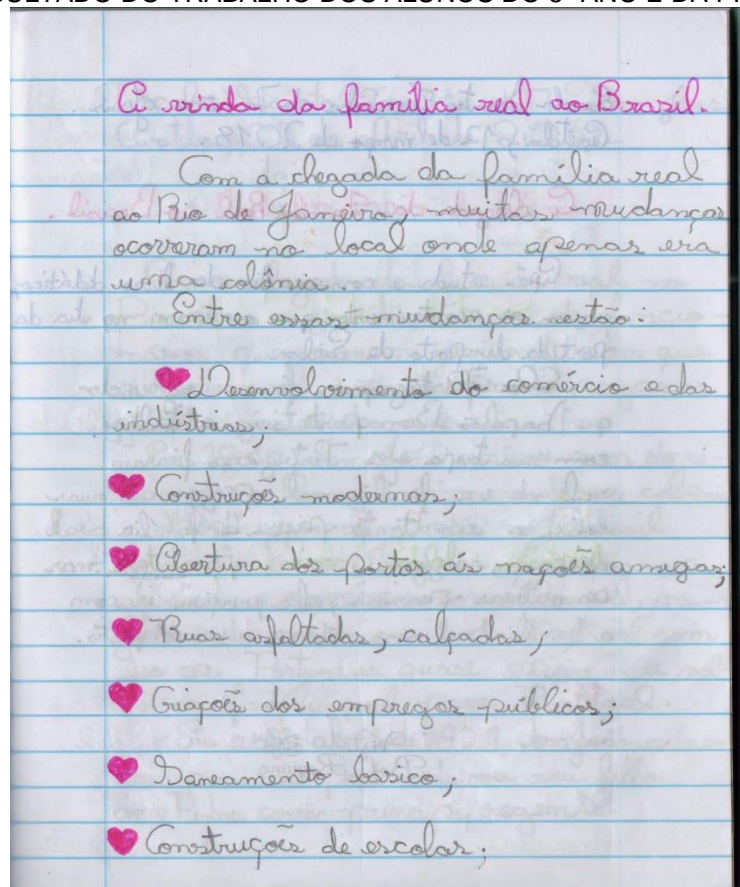 A vinda da família real ao Brasil.
Com a chegada da família real
ao Rio de Janeiro, muitas mudanças
ocorreram no local onde apenas era
uma colônia.
Entre essas mudanças estão:
Desenvolvimento do comércio e das
indústrias;
Construções modernas;
Abertura dos portos ás nações amigas;
Ruas asfaltadas, calçadas;
Criações dos empregos públicos;
Saneamento básico;
Construções de escolas;